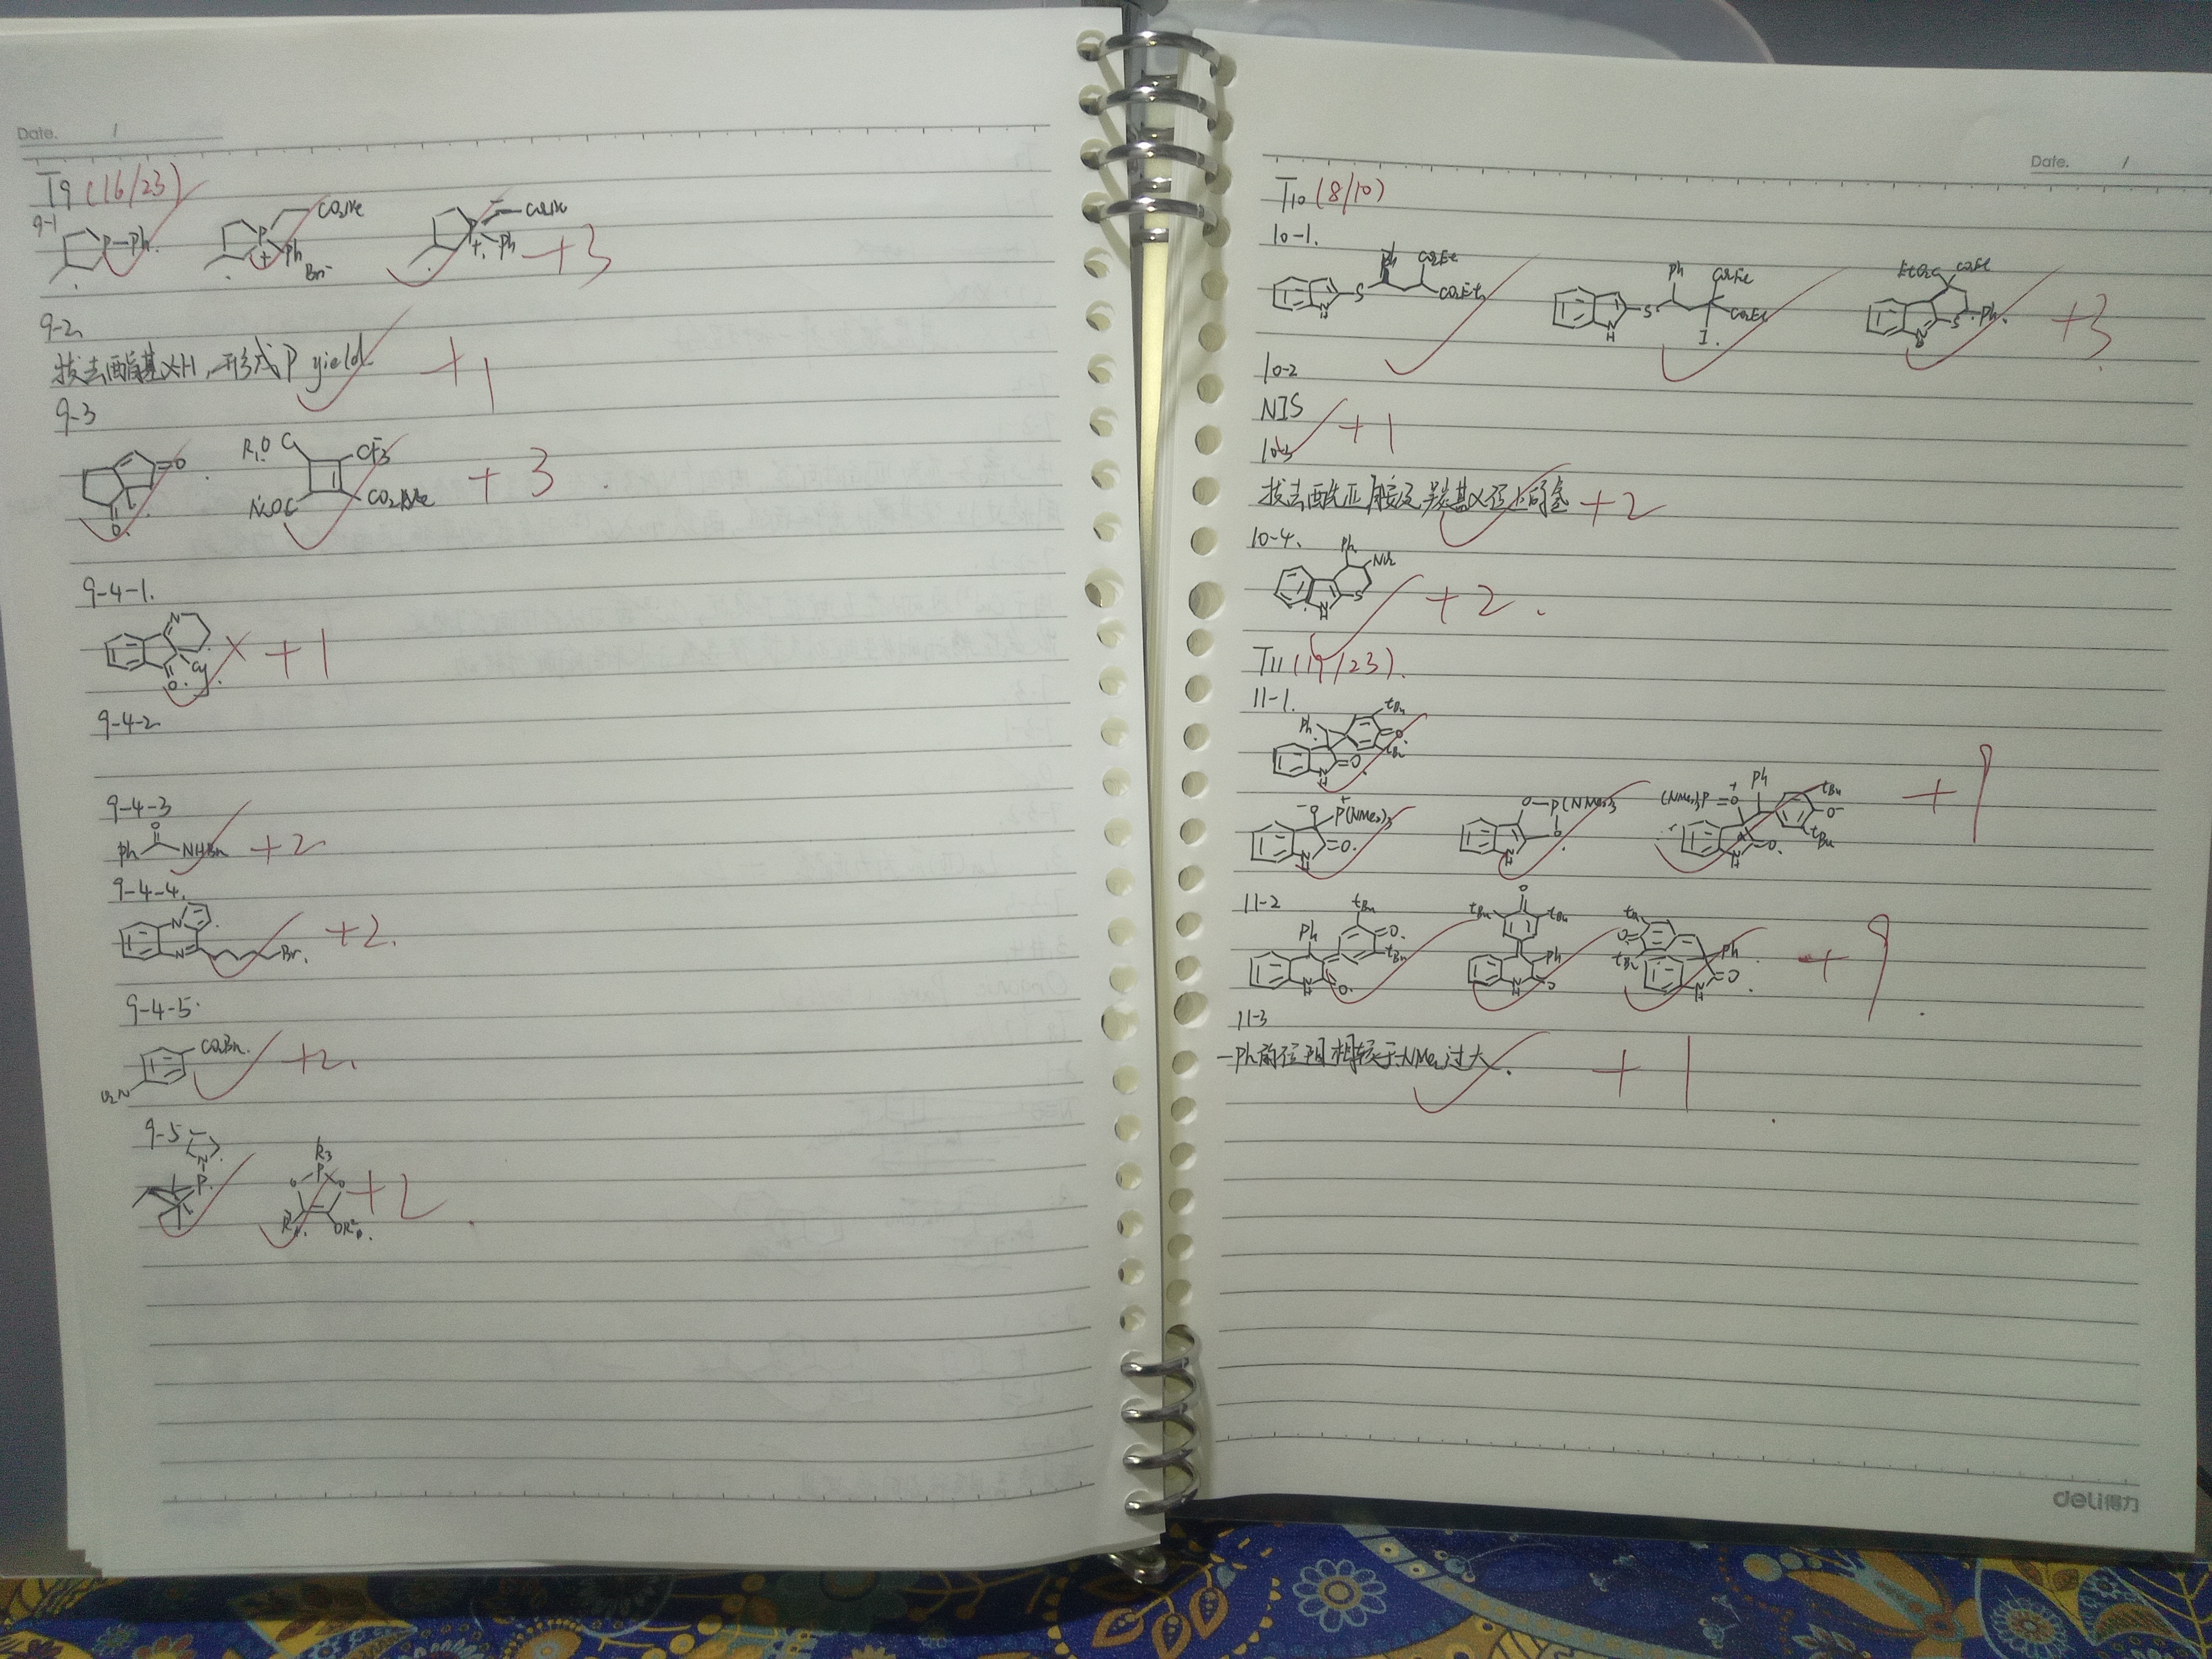 Date. /
T9 (16/23)
9-1
P-Ph. CO2Me P + Ph Br- CO2Me P + Ph +3
9-2
拔去酯基αH,形成P yield. +1
9-3
O O R1O CF3 CO2Me +3
9-4-1.
N O Cy × +1
9-4-2
9-4-3
Ph O NHBn +2
9-4-4.
N N Br. +2.
9-4-5.
CO2Bn. O2N +2.
9-5
N P. R3 P O O +2
Date. /
T10 (8/10)
10-1.
N H S Ph CO2Et CO2Et N H S Ph CO2Et CO2Et I. EtO2C CO2Et N S Ph. +3
10-2
NIS +1
10-3
拔去酰亚胺及羰基α位上的氢 +2
10-4.
Ph NO2 N H S +2.
T11 (19/23).
11-1.
Ph tBu O tBu N H O
-O +P(NMe2)3 N H O. O-P(NMe2)3 O N H (NMe2)3P Ph tBu O- tBu N H O +9
11-2
Ph tBu O. tBu N H O. O tBu tBu Ph N H O tBu O tBu Ph N H O +9
11-3
-Ph的位阻相较于-NMe2过大. +1
deli得力